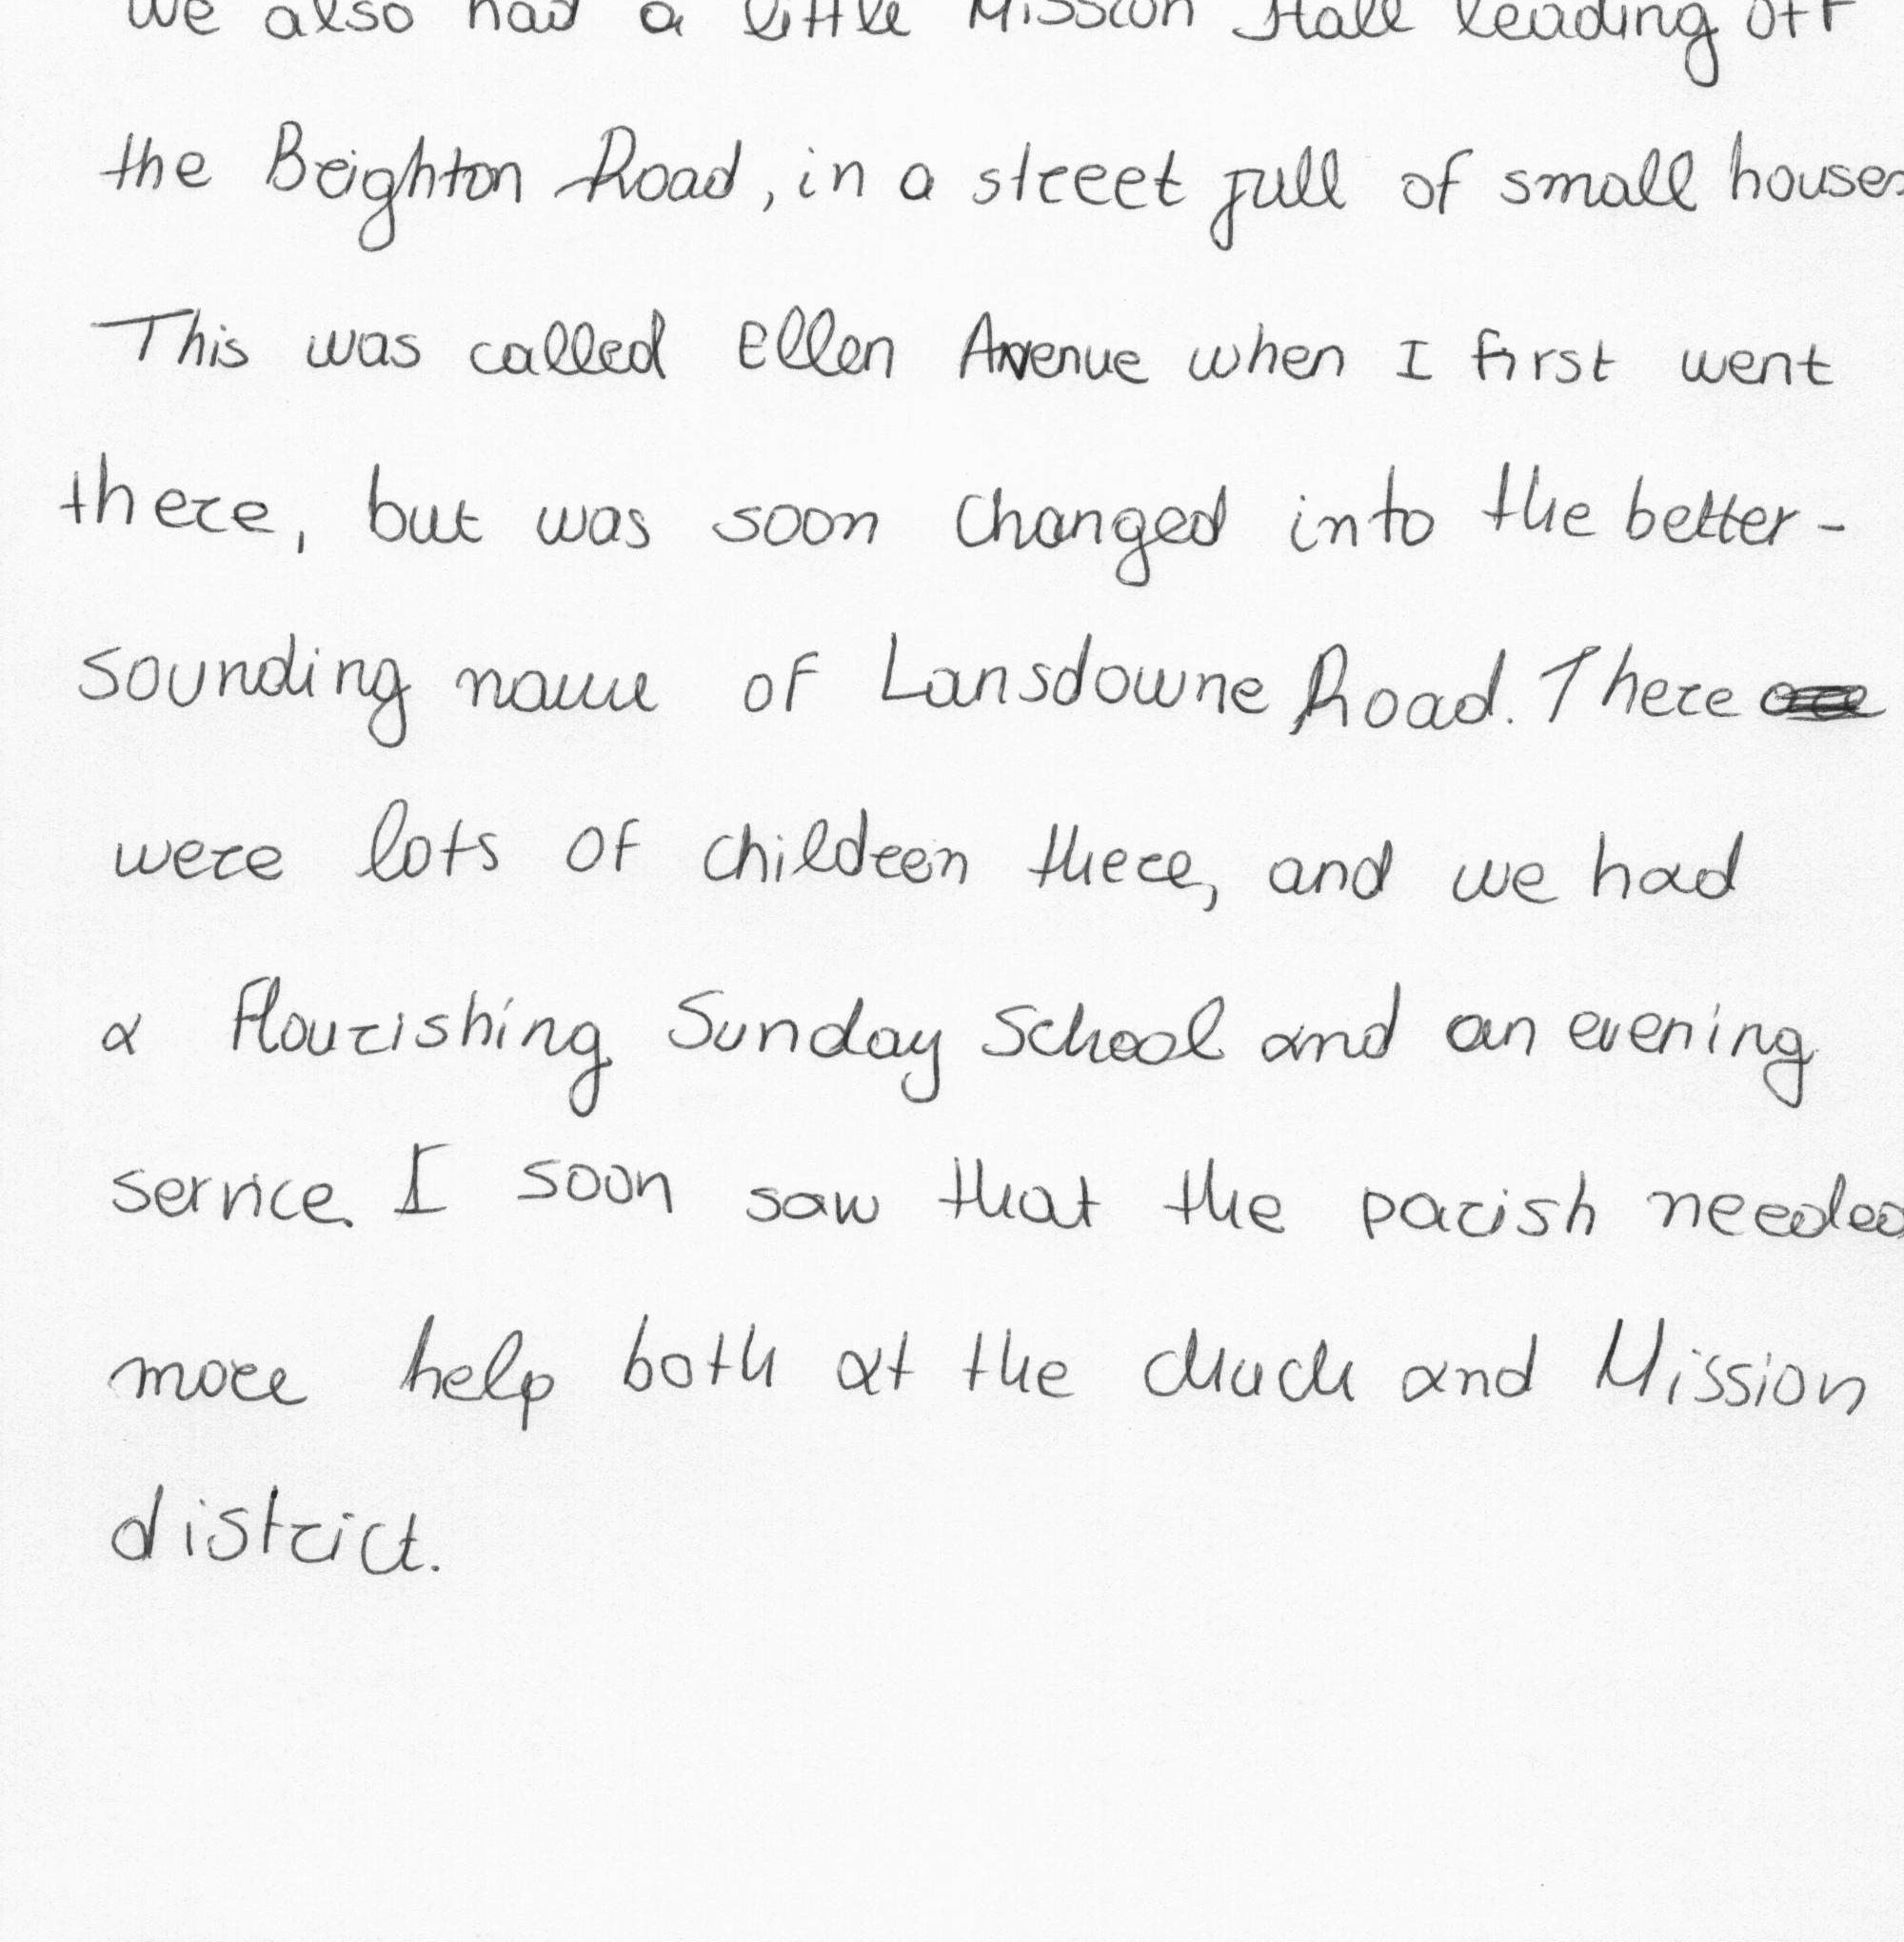 We also had a little Mission Hall leading off
the Brighton Road, in a street full of small houses
This was called Ellen Avenue when I first went
there, but was soon changed into the better-
sounding name of Lansdowne Road. There
were lots of children there, and we had
a flourishing Sunday School and an evening
service. I soon saw that the parish needed
more help both at the chuch and Mission
district.